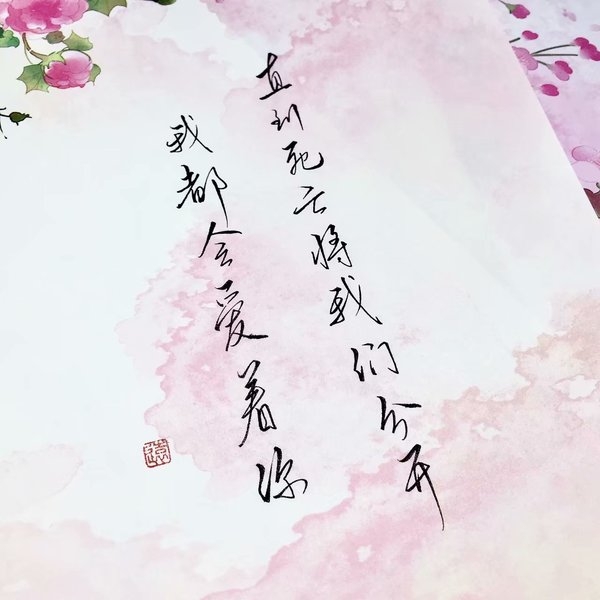 直到死亡将我们分开
我都会爱着你